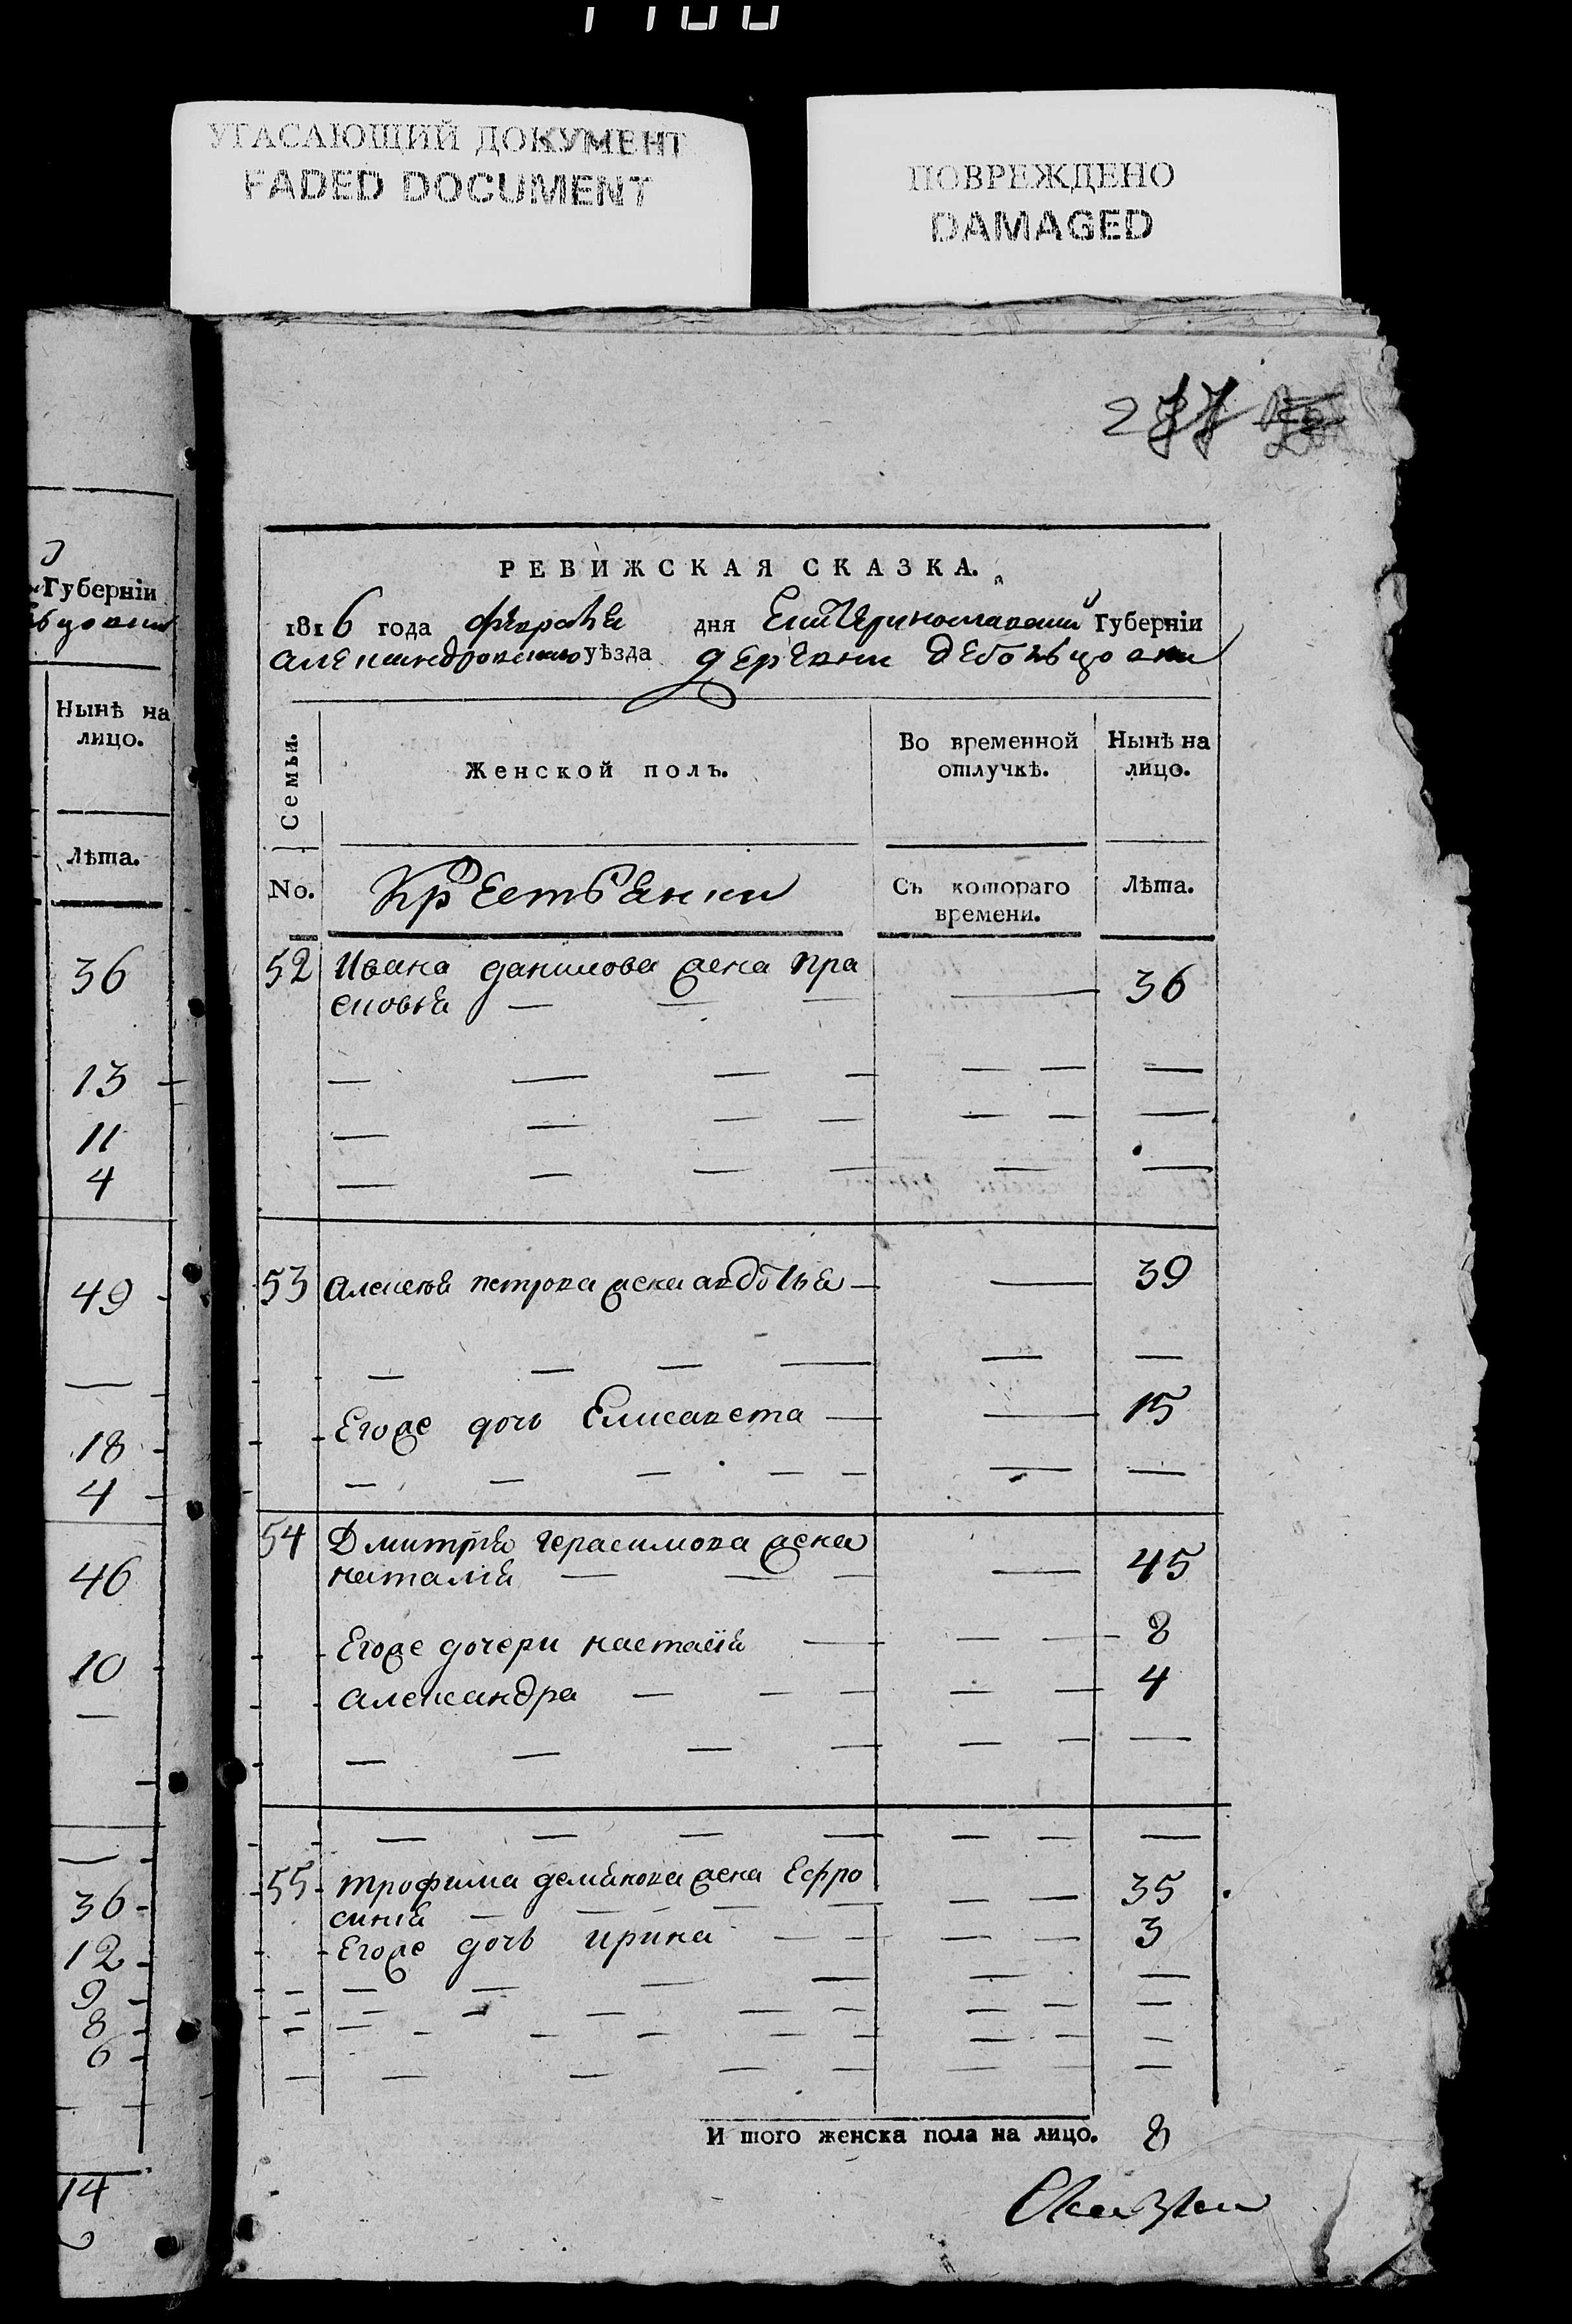 УГАСАЮЩИЙ ДОКУМЕНТ
FADED DOCUMENT
ПОВРЕЖДЕНО
DAMAGED
277
Губерніи
Нынѣ на
лицо.
Лѣта.
36
13
11
4
49
18
4
46
10
36
12
9
8
6
14
РЕВИЖСКАЯ СКАЗКА.
1816 года февраля дня Екатеринославской Губерніи
Александровскаго уѣзда деревни
Семьи.
Женской полъ.
Во временной
отлучкѣ.
Нынѣ на
лицо.
No.
Крестьянки
Съ котораго
времени.
Лѣта.
52 Ивана данилова жена пра
сковья — — — — 36
53 алексея петрова жена авдотья — — 39
Егоже дочь Елисавета — — 15
54 Дмитрія герасимова жена
наталія — — — — 45
Егоже дочери настасія — — — 8
александра — — — — — 4
55 трофима демянова жена Ефро
синія — — — — — — 35
Егоже дочь ирина — — — — 3
И того женска пола на лицо. 8